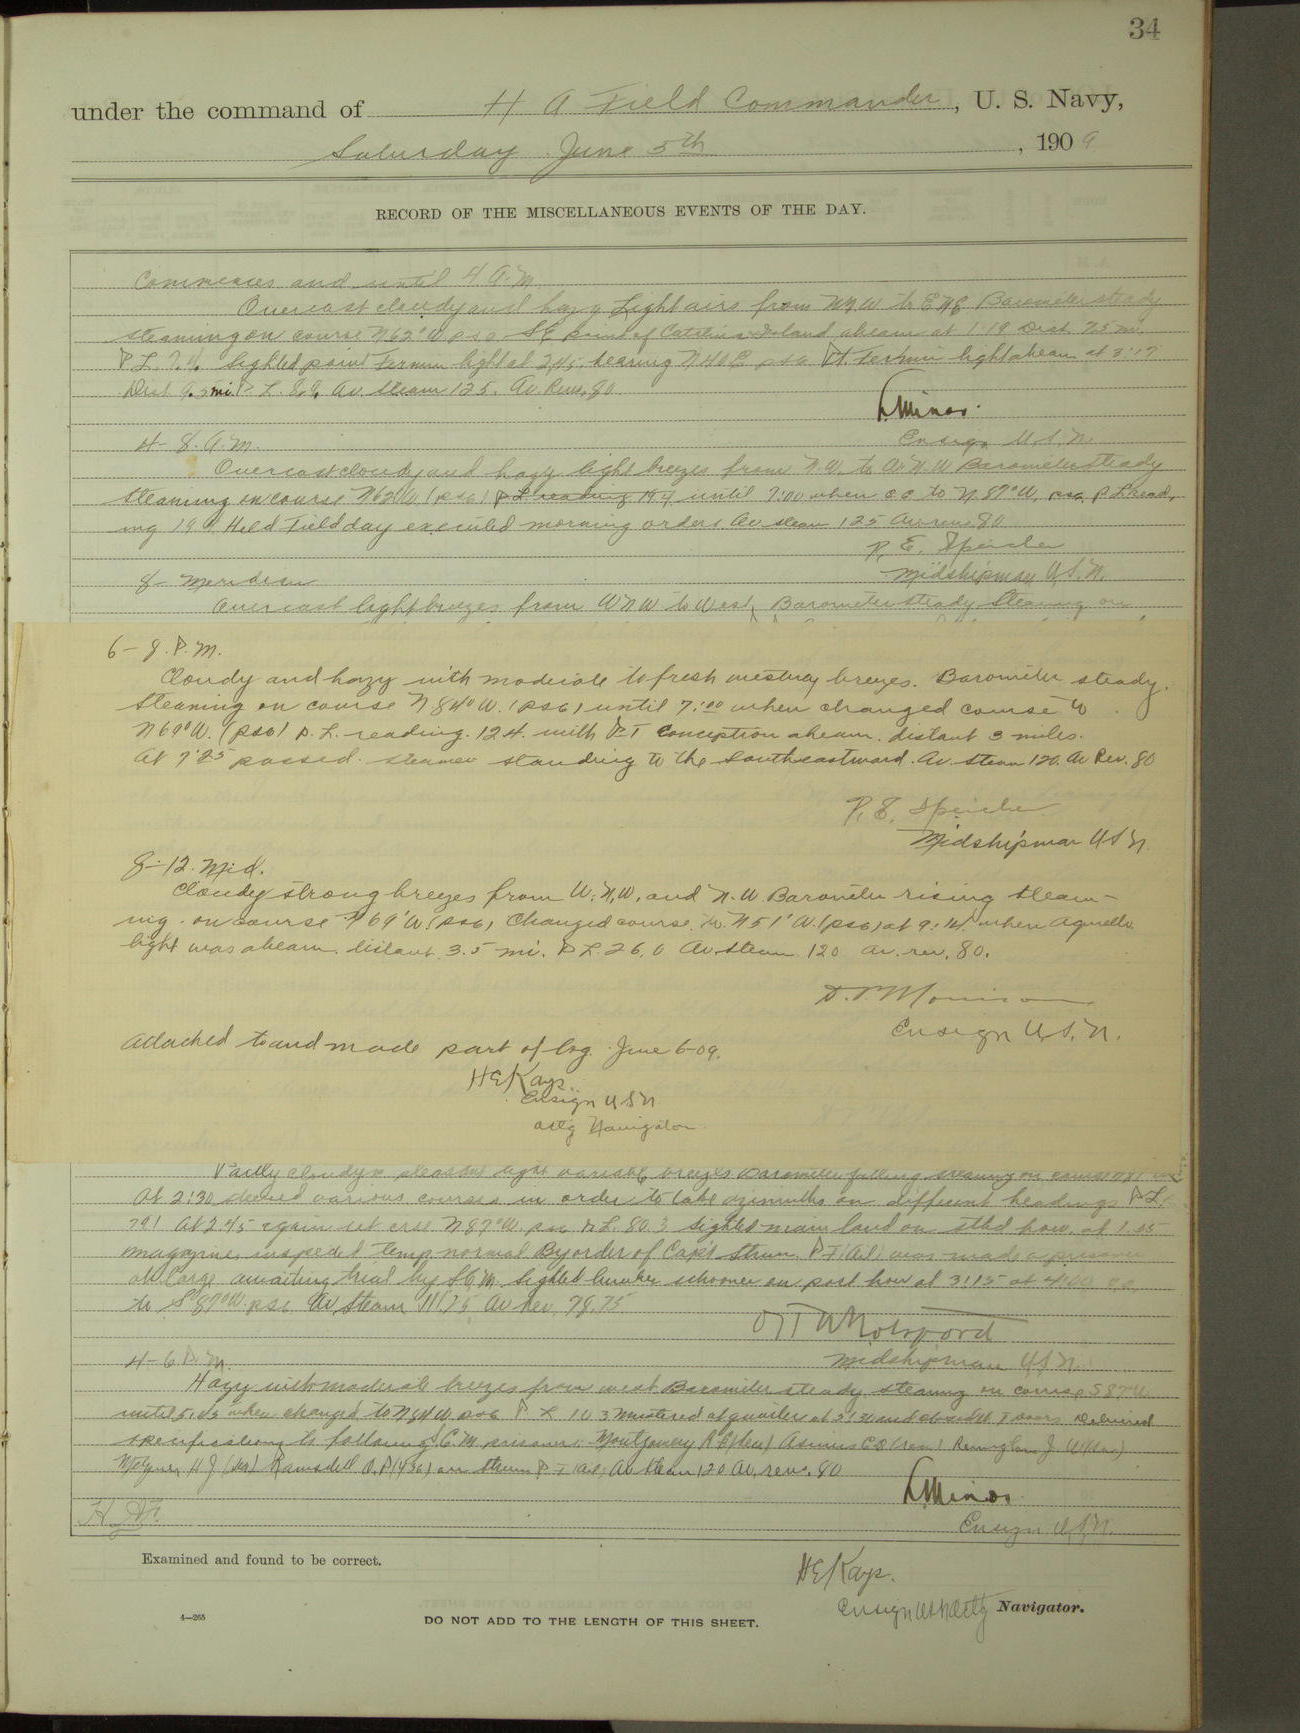 34
under the command of H A Field Commander, U. S. Navy,
Saturday June 5th, 1909
RECORD OF THE MISCELLANEOUS EVENTS OF THE DAY.
Commences and until 4 A.M.
Overcast cloudy and hazy Light airs from to Barometer steady
steaming on course N62°W psc SE point of Catalina Island abeam at 1:19 Dist 7.5 mi.
P.L. 7.4. Sighted point Fermin light at 2:45, bearing psc Pt. Fermin light abeam at 3:17
Dist mi. P.L. Av. steam 125. Av. Revs. 80
L. Minor.
4- 8. A.M. Ensign U.S.N.
Overcast cloudy and hazy light breezes from N.W. to W.N.W Barometer steady
steaming on course N62W (psc) P L reading 19.4 until 7:00 when c.c to N 87°W. psc. P L read,
ing 19. Held Field day executed morning orders Av steam 125 Av revs 80
P. E. Speicher
8- Meridian Midshipman U.S.N.
Overcast light breezes from WNW to West, Barometer steady Steaming on
6- 8. P.M.
Cloudy and hazy with moderate to fresh westerly breezes. Barometer steady.
Steaming on course N 84° W. (psc) until 7:00 when changed course to
N 69° W. (psc) P. L. reading. 12.4. with PT Conception abeam. distant 3 miles.
At 7:25 passed. steamer standing to the southeastward. Av. steam 120. Av Rev. 80
P. E. Speicher
Midshipman U S N.
8-12. Mid.
Cloudy strong breezes from W.N.W. and N.W Barometer rising steam-
ing on course N 69° W. (psc) Changed course to N 51° W. (psc) at 9:14 when Aguello
light was abeam. distant. 3.5 mi. P L. 26.0 Av. steam 120 av. rev. 80.
Ensign U.S.N.
Attached to and made part of log. June 6-09.
H E Kays
Ensign U S N
actg Navigator
Partly cloudy pleasant light variable breezes Barometer falling steaming on course
At 2:30 steered various courses in order to take azimuths on different headings P.L.
79.1 At 2:45 again set crse N 87°W. psc P.L. 80.3 Sighted main land on stbd bow. at 1:55
magazines inspected temp. normal By order of Capt was made a prisoner
at large awaiting trial by S.C.M. Sighted lumber schooner on port bow at 3:15 at 4:00 c.c.
to S 87°W. psc Av. Steam Av Rev. 78.75
4-6 P.M. Midshipman U.S.N.
Hazy with moderate breezes from west Barometer steady. steaming on course S 87° W
until when changed to N84W psc P L 10.3 Mustered at quarters at and closed W. T doors. Delivered
specifications to following S.C.M. prisoners: Montgomery
Ramsdell Av. steam 120 Av. revs. 80
L. Minor
Ensign U.S.N.
Examined and found to be correct.
H E Kays.
Ensign USN actg Navigator.
4—265
DO NOT ADD TO THE LENGTH OF THIS SHEET.